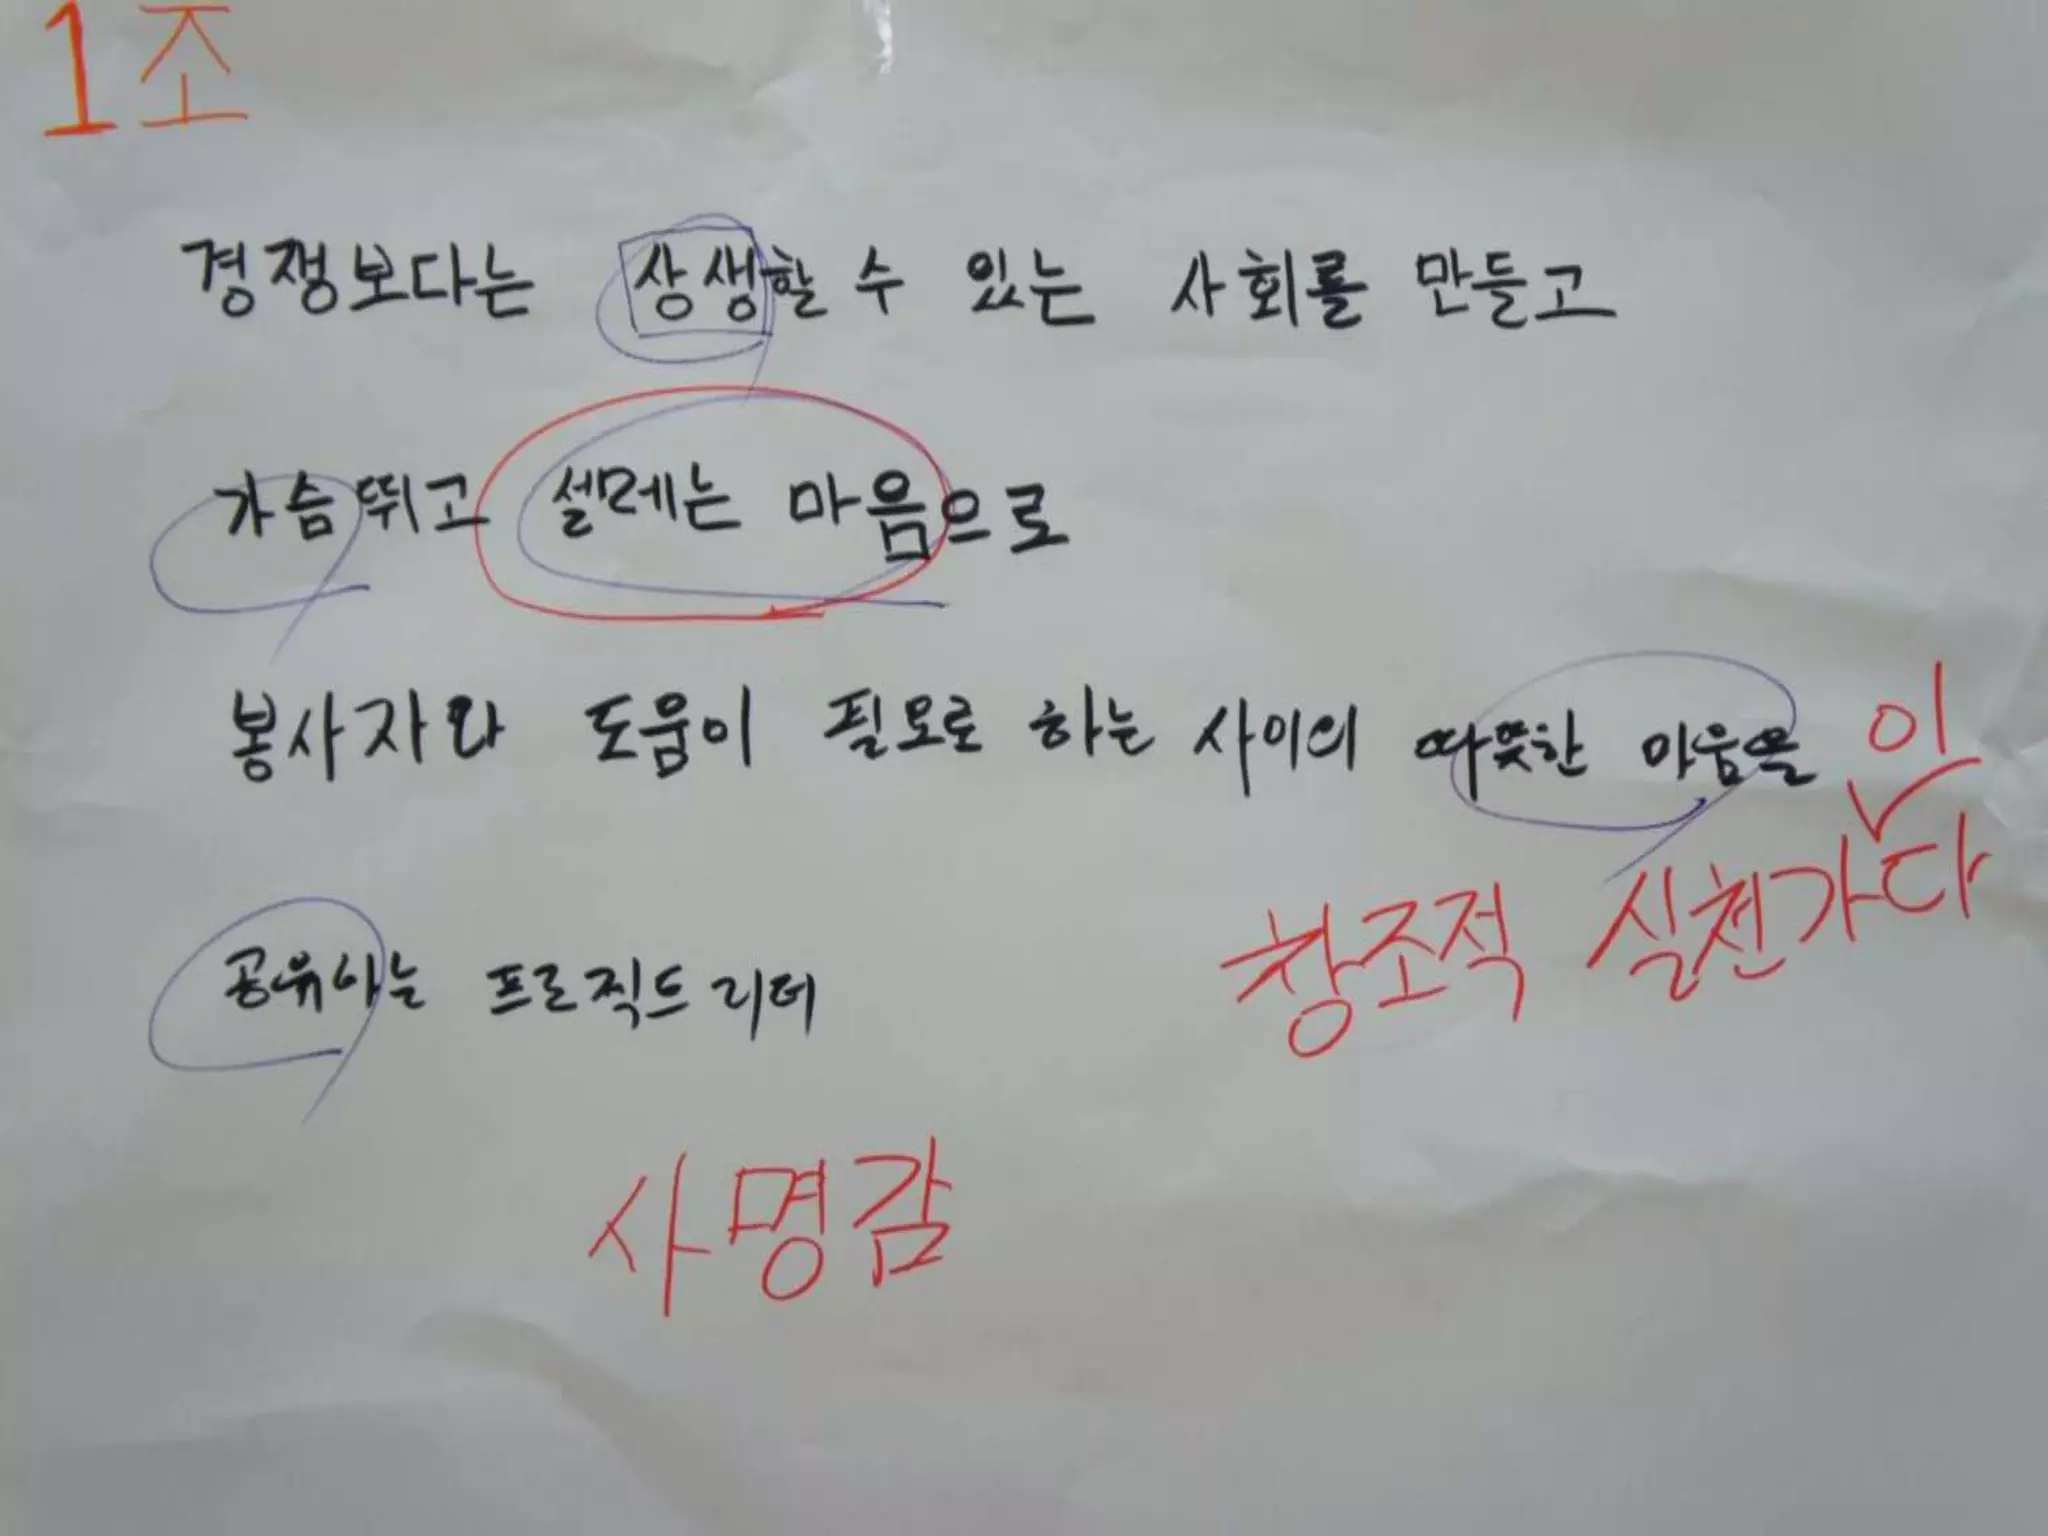 1조
경쟁보다는 상생할 수 있는 사회를 만들고
가슴뛰고 설레는 마음으로
봉사자와 도움이 필요로 하는 사이의 따뜻한 마음을
이
창조적 실천가다
공유하는 프로젝트리더
사명감